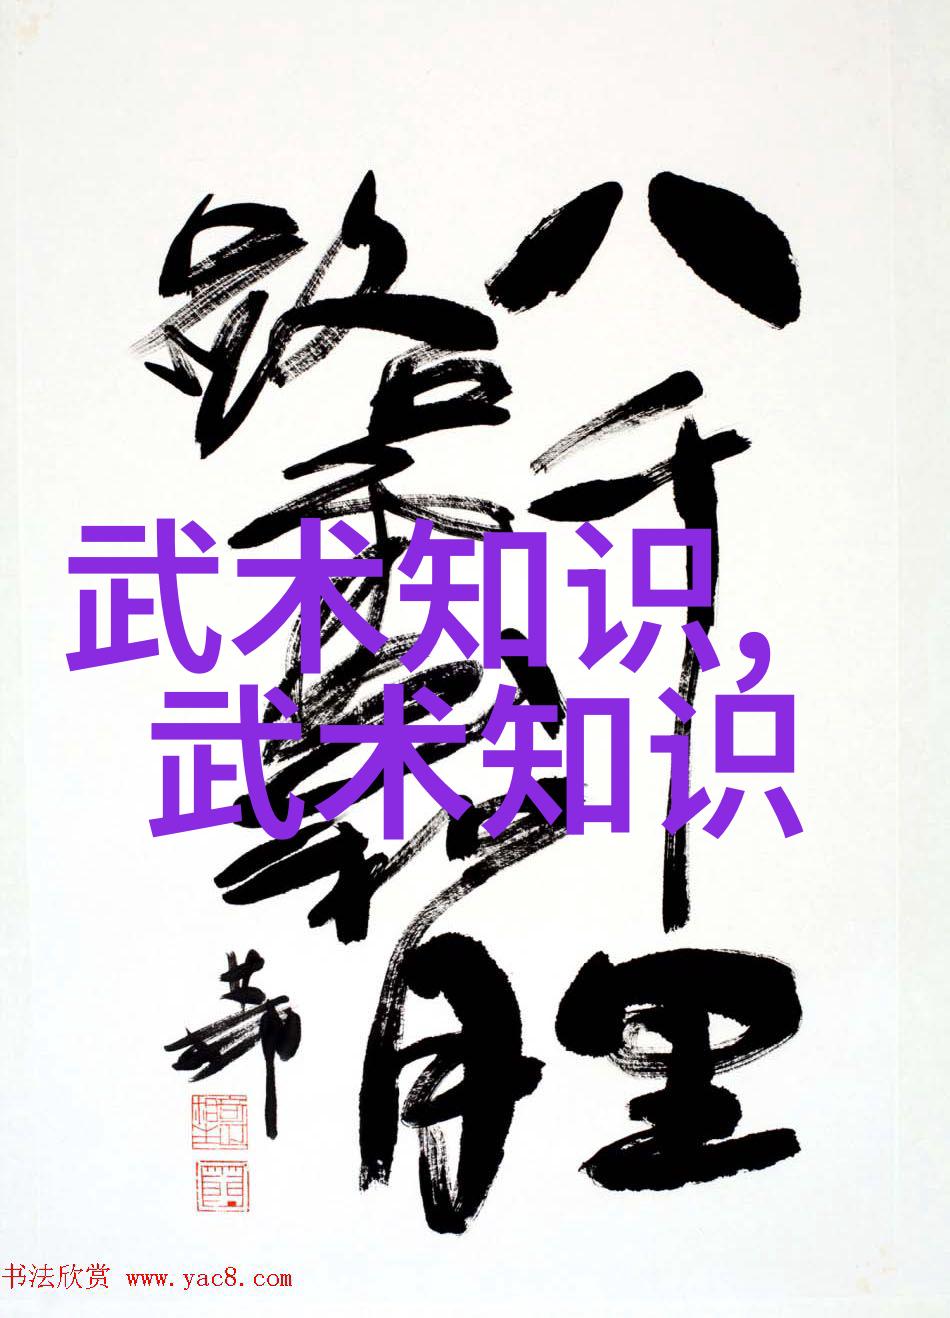 八千里
路雲和月
武术知识,
武术知识
书法欣赏 www.yac8.com